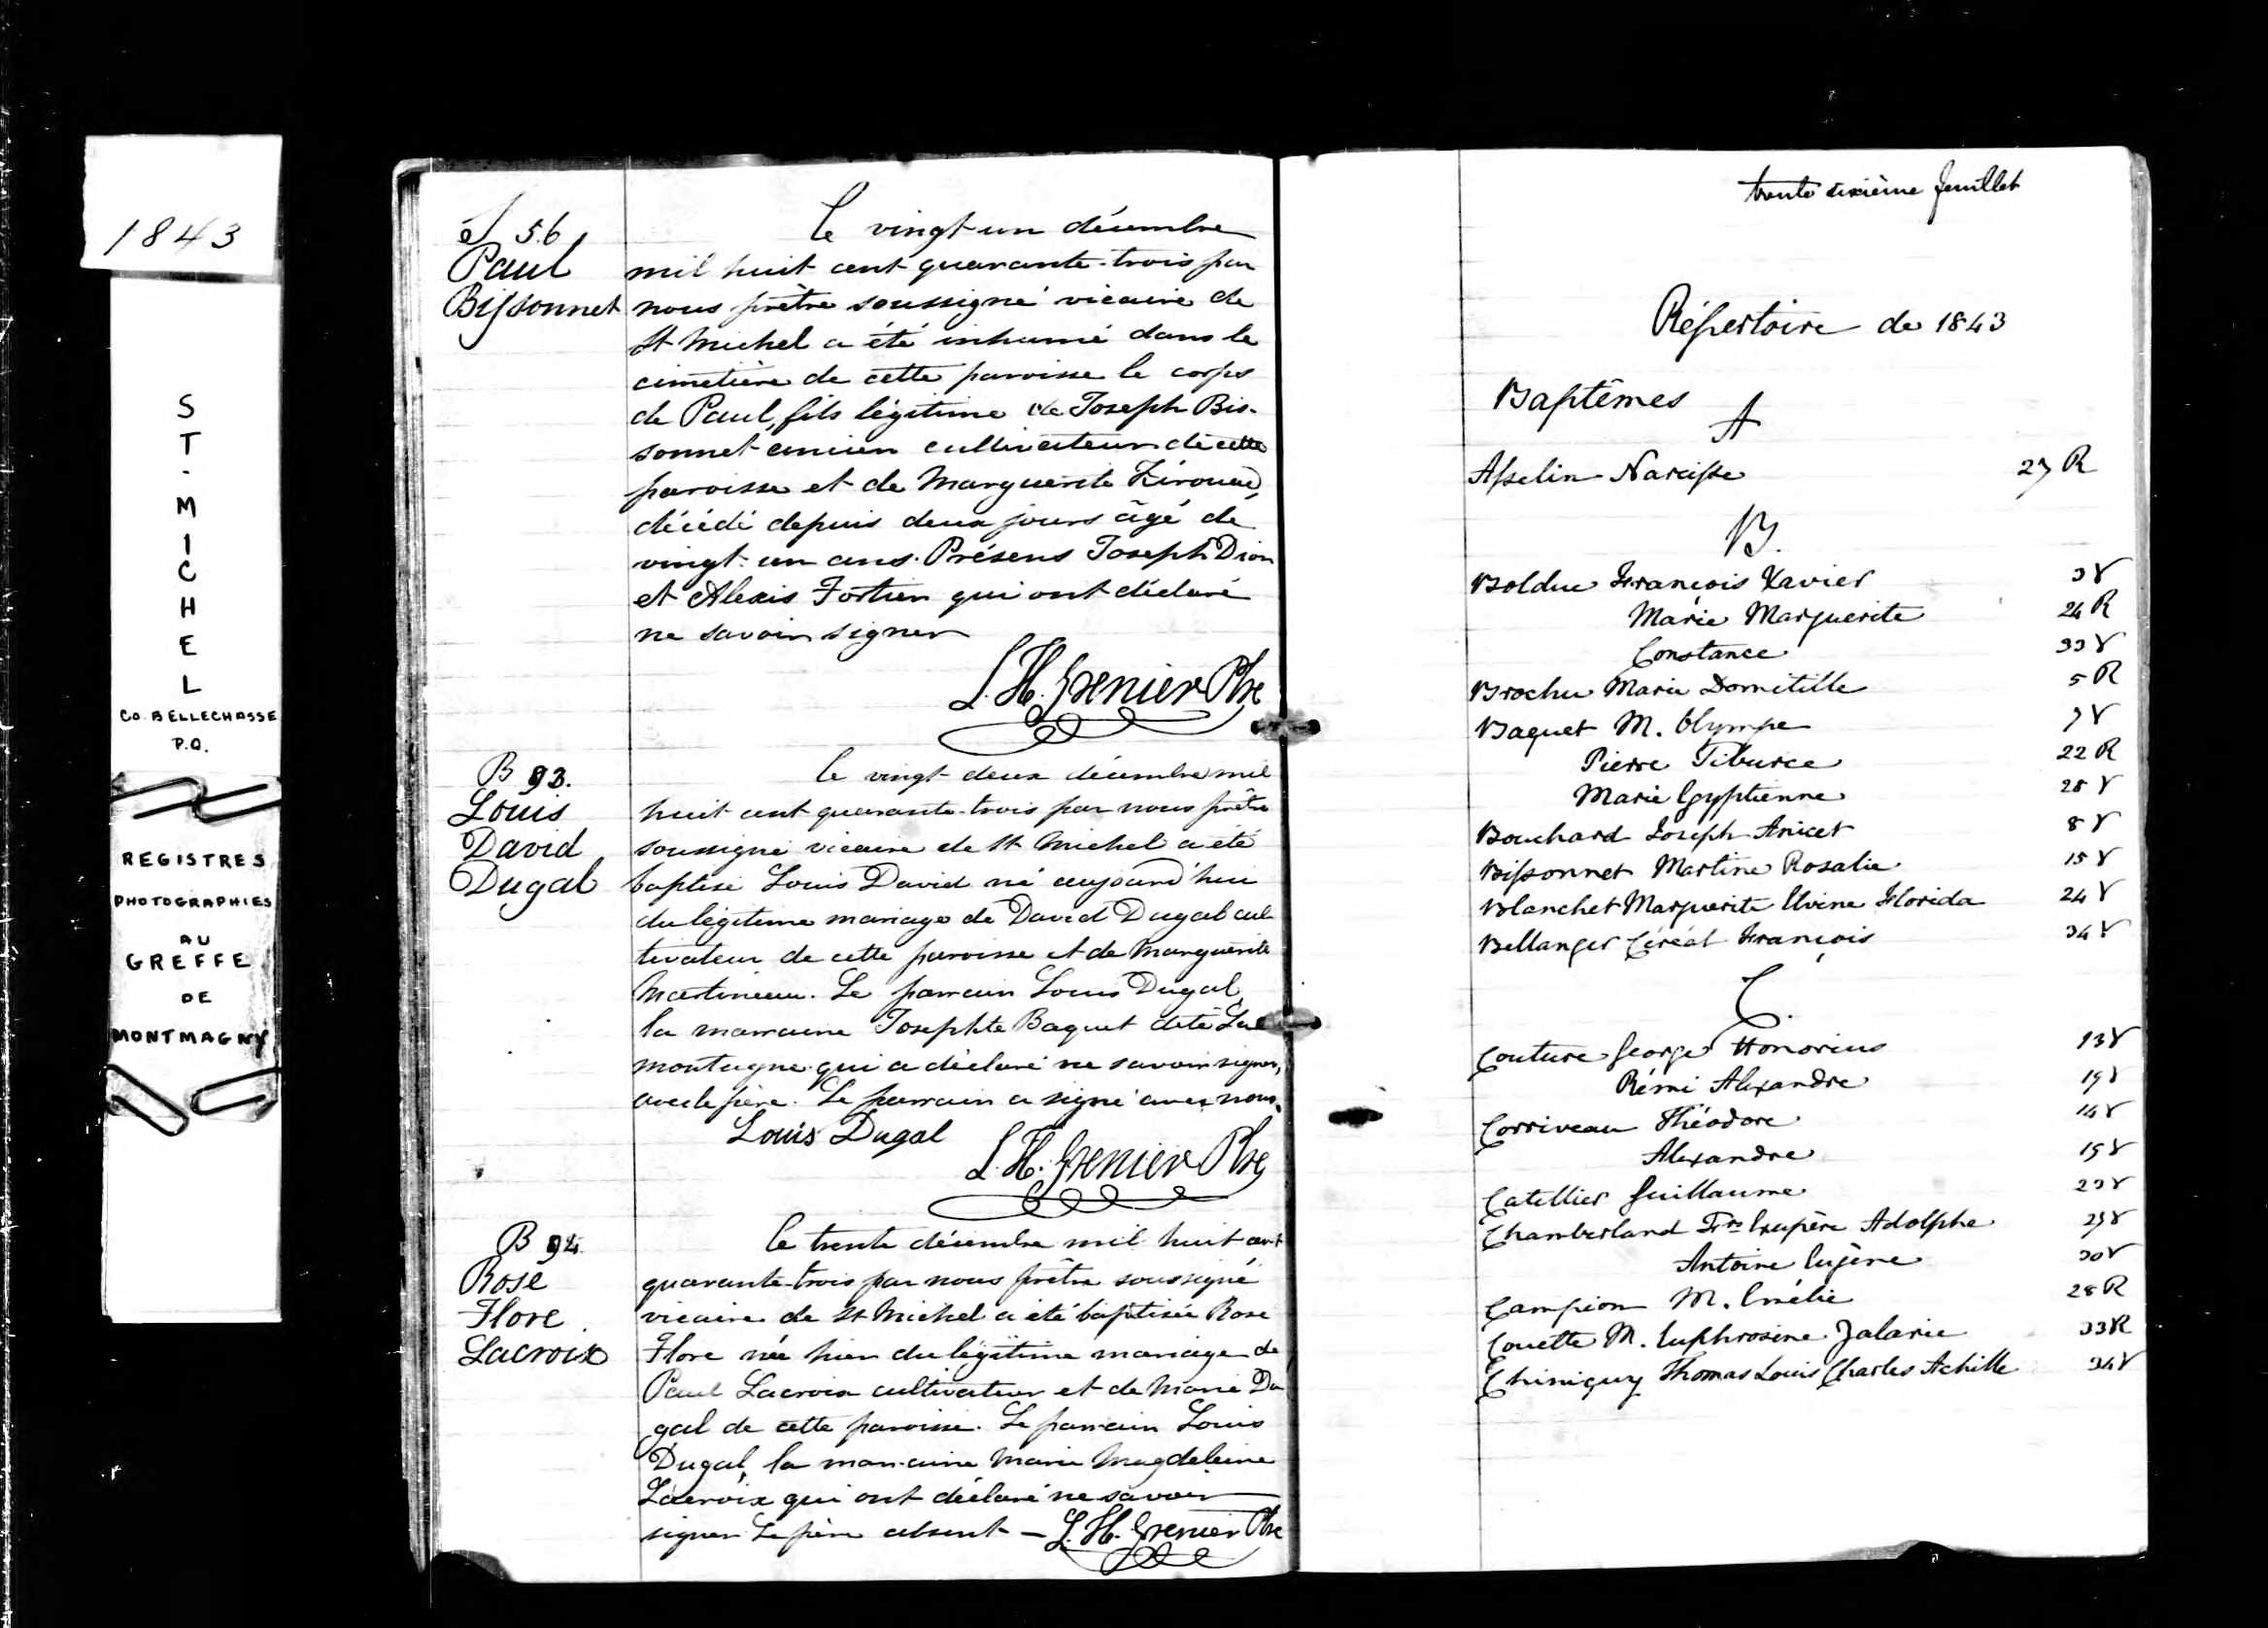 1843
S
T
.
M
I
C
H
E
L
CO. BELLECHASSE
P.Q.
REGISTRES
PHOTOGRAPHIES
AU
GREFFE
DE
MONTMAGNY
S 56
Paul
Bissonnet
Le vingt-un décembre
mil huit cent quarante-trois par
nous prêtre soussigné vicaire de
St Michel a été inhumé dans le
cimetière de cette paroisse le corps
de Paul, fils légitime de Joseph Bis-
sonnet ancien cultivateur de cette
paroisse et de Marguerite
décédé depuis deux jours âgé de
vingt-un ans. Présens Joseph Dion
et Alexis Fortier qui ont déclaré
ne savoir signer
L. H. Grenier Ptre
B 93.
Louis
David
Dugal
Le vingt-deux décembre mil
huit cent quarante-trois par nous prêtre
soussigné vicaire de St Michel a été
baptisé Louis David né aujourd'hui
du légitime mariage de David Dugal cul-
tivateur de cette paroisse et de Marguerite
Martineau. Le parrain Louis Dugal,
la marraine Josephte Baquet dite La
montagne qui a déclaré ne savoir signer,
avec le père. Le parrain a signé avec nous.
Louis Dugal
L. H. Grenier Ptre
B 94.
Rose
Flore
Lacroix
Le trente décembre mil huit cent
quarante-trois par nous prêtre soussigné
vicaire de St Michel a été baptisée Rose
Flore née hier du légitime mariage de
Paul Lacroix cultivateur et de Marie Du
gal de cette paroisse. Le parrain Louis
Dugal, la marraine Marie Magdeleine
Lacroix qui ont déclaré ne savoir
signer Le père absent — L. H. Grenier Ptre
trente sixième feuillet
Répertoire de 1843
Baptêmes
A
Asselin Narcisse 27 R
B.
Bolduc François Xavier 3 V
Marie Marguerite 24 R
Constance 33 V
Brochu Marie Domitille 5 R
Baquet M. Olympe 7 V
Pierre Tiburce 22 R
Marie Egyptienne 28 V
Bouchard Joseph Anicet 8 V
Bissonnet Martine Rosalie 15 V
Blanchet Marguerite Elvine Florida 24 V
Bellanger Céréal François 34 V
C.
Couture George Honorius 13 V
Rémi Alexandre 19 V
Corriveau Théodore 14 V
Alexandre 19 V
Catellier Guillaume 23 V
Chamberland Frs Exupère Adolphe 29 V
Antoine Eugène 30 V
Campion M. Emélie 28 R
Couette M. Euphrosine Zalarie 33 R
Chiniquy Thomas Louis Charles Achille 34 V